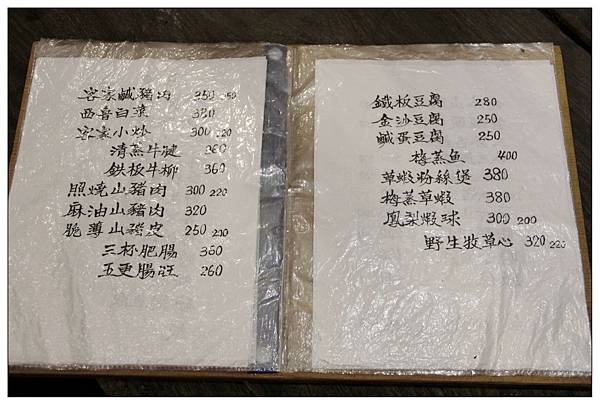 客家鹹豬肉 350 250
西魯白菜 380
客家小炒 300 220
清蒸牛腱 360
鉄板牛柳 360
照燒山豬肉 300 220
麻油山豬肉 320
脆薄山豬皮 250 200
三杯肥腸 360
五更腸旺 260
鐵板豆腐 280
金沙豆腐 250
鹹蛋豆腐 250
梅蒸魚 400
草蝦粉絲煲 380
梅蒸草蝦 380
鳳梨蝦球 300 200
野生牧草心 320 220